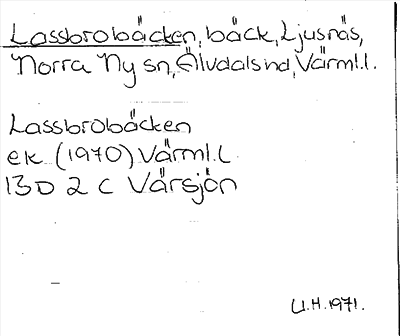 Lassbrobäcken, bäck, Ljusnäs,
Norra Ny sn, Älvdals hd, Värml.l.
Lassbrobäcken
ek (1970) Värml.L
13D 2 C Värsjön
U.H. 1971.